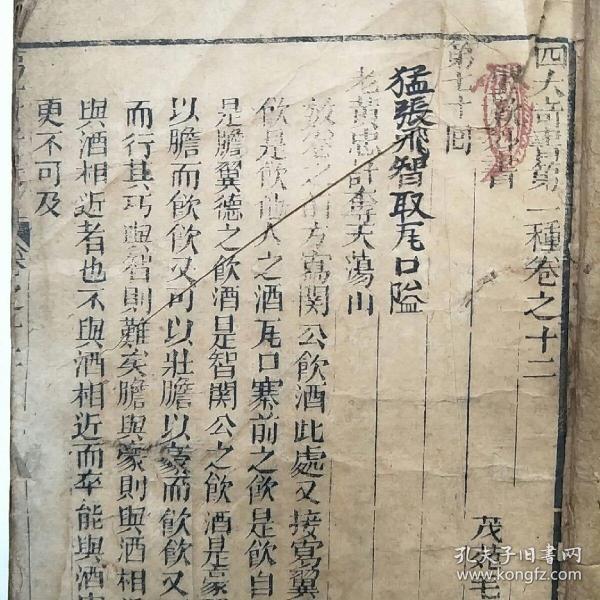 四大奇書第一種卷之十二
茂苑毛
第七十回
猛張飛智取瓦口隘
老黃忠計奪天蕩山
寫關公飲酒此處又接寫翼
飲是飲他人之酒瓦口寨前之飲是飲自
是膽翼德之飲酒是智關公之飲酒是豪
以膽而飲飲又可以壯膽以豪而飲飲又
而行其巧與智則難矣膽與豪則與酒相
與酒相近者也不與酒相近而卒能與酒
更不可及
孔夫子旧书网
www.kongfz.com